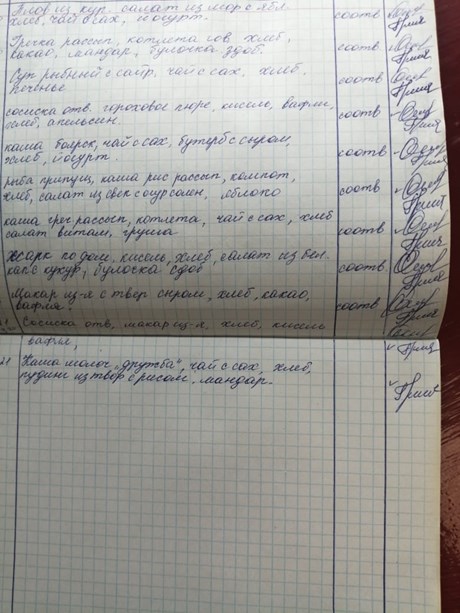 Плов из кур. салат из мор с ябл.
хлеб, чай с сах, йогурт. соотв
Гречка рассып, котлета гов. хлеб,
какао, мандар, булочка здоб. соотв
Суп рыбный с сайр, чай с сах, хлеб,
печенье соотв
сосиска отв. гороховое пюре, кисель, вафли,
хлеб, апельсин. соотв
каша боярск, чай с сах, бутерб с сыром,
хлеб, йогурт. соотв
рыба припущ, каша рис рассып, компот,
хлеб, салат из свек с огур солен, яблоко соотв
каша греч рассып, котлета, чай с сах, хлеб
салат витам, груша соотв
жарк по дом, кисель, хлеб, салат из бел-
кап с кукур, булочка сдоб соотв
Макар из-я с тверд сыром, хлеб, какао,
вафля. соотв
Сосиска отв, макар из-я, хлеб, кисель
вафля,
21 Каша молоч "дружба", чай с сах, хлеб,
пудинг из твор с рисом, мандар.